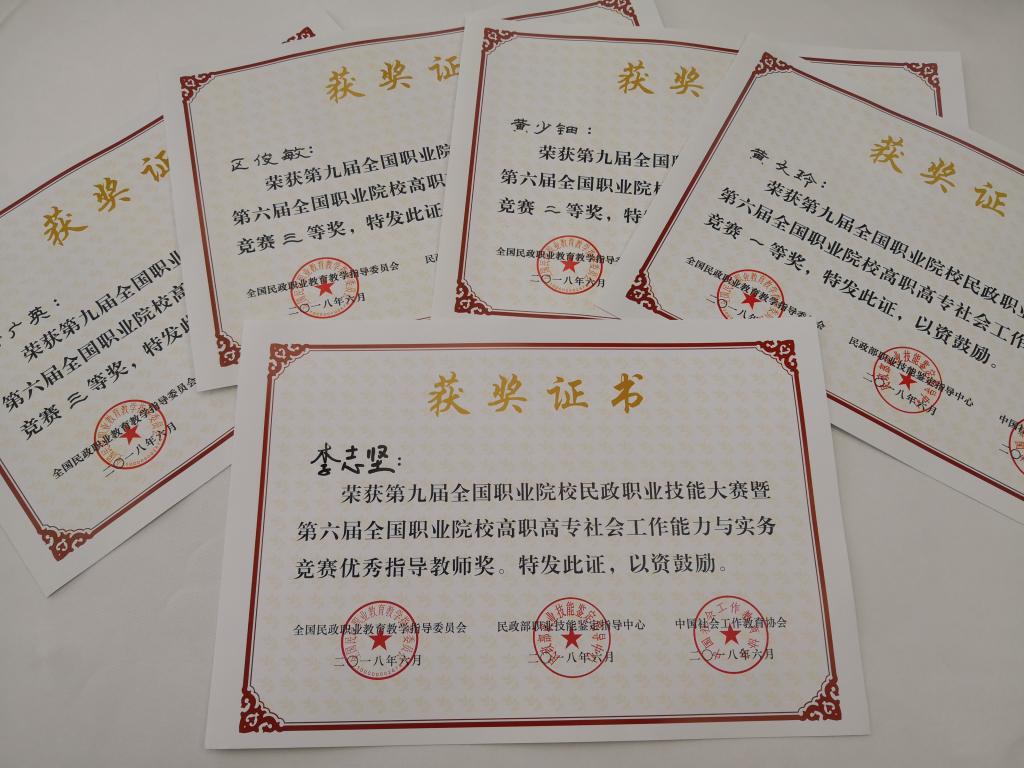 获奖证
区俊敏：
荣获第九届全国职业院
第六届全国职业院校高职
竞赛三等奖，特发此证
全国民政职业教育教学指导委员会
二〇一八年六月
获奖
黄少钿：
荣获第九届全国
第六届全国职业院校
竞赛二等奖，特发
全国民政职业教育教学指导
二〇一八年六月
获奖证
黄文玲：
荣获第九届全国职业院校民政职业
第六届全国职业院校高职高专社会工作
竞赛一等奖，特发此证，以资鼓励。
全国民政职业教育教学指导委员会
民政部职业技能鉴定指导中心
二〇一八年六月
获奖证
广英：
荣获第九届全国职业
第六届全国职业院校高
竞赛三等奖，特发此
全国民政职业教育教学指导委员会
二〇一八年六月
获奖证书
李志坚：
荣获第九届全国职业院校民政职业技能大赛暨
第六届全国职业院校高职高专社会工作能力与实务
竞赛优秀指导教师奖。特发此证，以资鼓励。
全国民政职业教育教学指导委员会 民政部职业技能鉴定指导中心 中国社会工作教育协会
二〇一八年六月 二〇一八年六月 二〇一八年六月